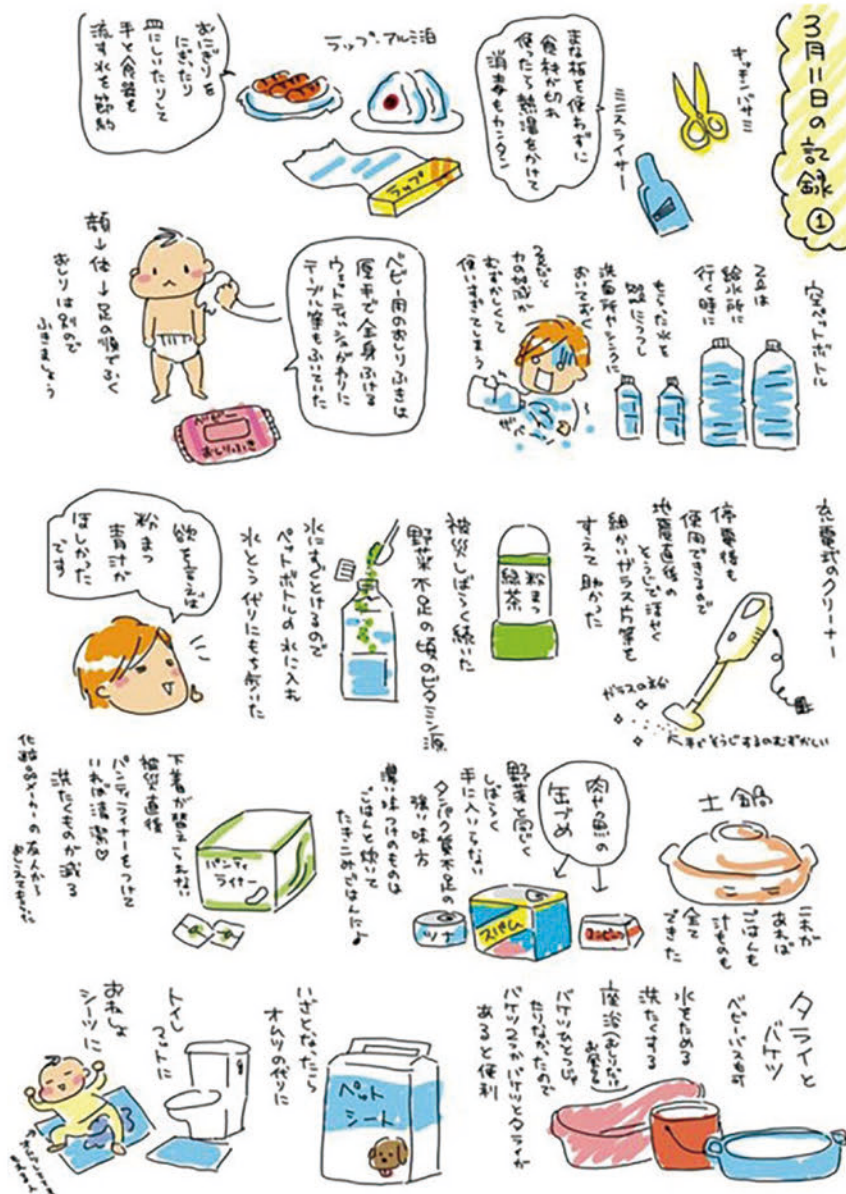 3月11日の記録①
キッチンバサミ
ミニスライサー
まな板を使わずに
食材が切れ
使ったら熱湯をかけて
消毒もカンタン
ラップ・アルミ泊
ラップ
おにぎりを
にぎったり
皿にしいたりして
手と食器を
流す水を節約
空ペットボトル
2ℓは
給水所に
行く時に
もらった水を
洗面所やシンクに
おいておく
2ℓだと
力の加減が
むずかしくて
使いすぎてしまう
ベビー用のおしりふきは
厚手で全身ふける
ウェットティッシュがわりに
テーブル等もふいていた
ベビー
おしりふき
顔→体→足の順でふく
おしりは別ので
ふきましょう
充電式のクリーナー
停電後も
使用できるので
地震直後の
そうじで深せつ
細かいガラス片等を
すえて助かった
ガラスの粉
手でそうじするのむずかしい
粉まつ
緑茶
被災しばらく続いた
野菜不足の頃のビタミン源
水にすぐとけるので
ペットボトルの水に入れ
水とう代りにもち歩いた
欲を言えば
粉まつ
青汁が
ほしかった
です
土鍋
これが
あれば
ごはんも
汁ものも
全て
できた
肉や魚の
缶づめ
野菜と同じく
しばらく
手に入らない
タンパク質不足の
強い味方
濃い味つけのものは
ごはんと炊いて
たきこみごはんに♪
ツナ
スパム
コンビーフ
パンティ
ライナー
下着が替えられない
被災直後
パンティライナーをつけて
いれば清潔♡
洗たくものが減る
化粧品メーカーの友人から
おしえてもらった
タライと
バケツ
ベビーバスも可
水をためる
洗たくする
座浴(おしりだけお風呂)
バケツひとつじゃ
たりなかったので
バケツ2つかバケツとタライが
あると便利
ペット
シート
いざとなったら
オムツの代りに
トイレ
マットに
おねしょ
シーツに